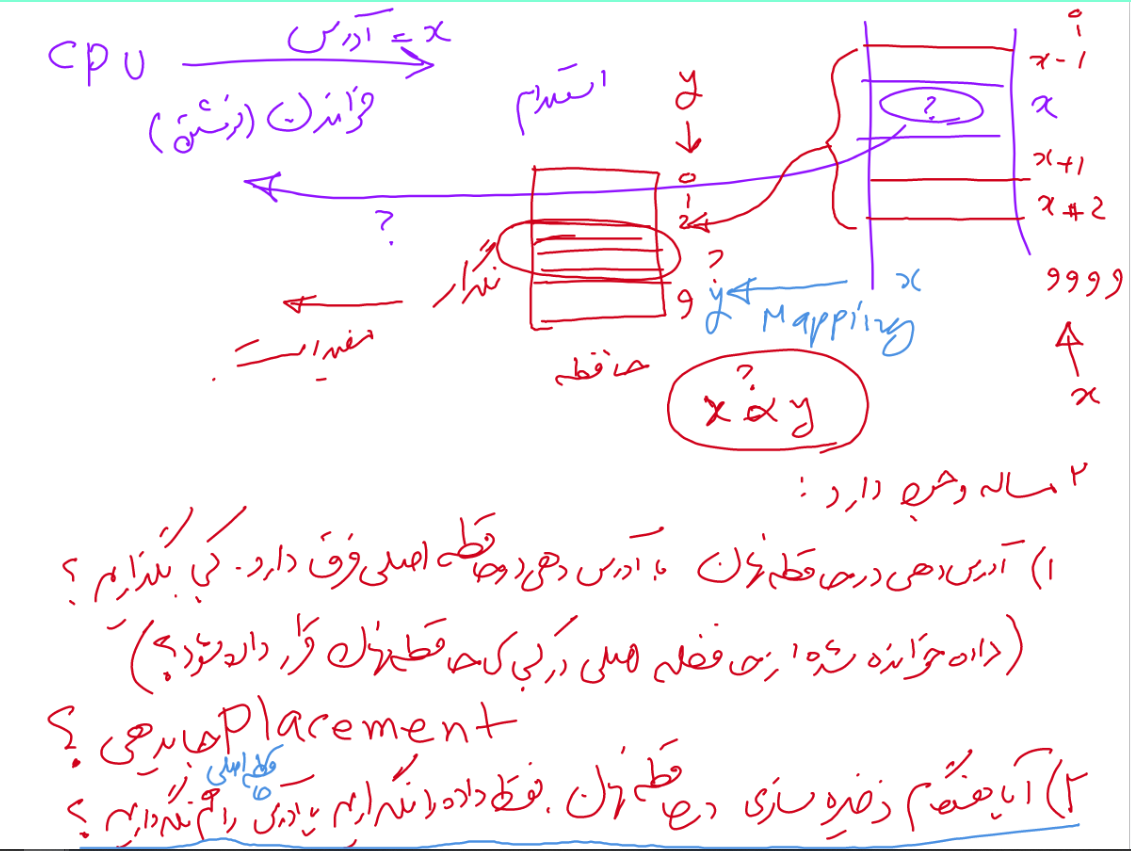 CPU
آدرس = x
خواندن (نوشتن)
?
y
0
1
2
?
9
y
x
Mapping
0
1
x-1
x
?
x+1
x+2
9999
x
نگذار
مفید است.
حافظه
?
x α y
۲ مساله وجود دارد :
۱) آدرس دهی در حافظه نهان با آدرس دهی در حافظه اصلی فرق دارد. کجا بگذاریم ؟
(داده خوانده شده از حافظه اصلی در کجای حافظه نهان قرار داده شود؟)
Placement جایدهی ؟
۲) آیا هنگام ذخیره سازی در حافظه نهان، فقط داده را نگه داریم یا آدرس را هم نگه داریم ؟
حافظه اصلی